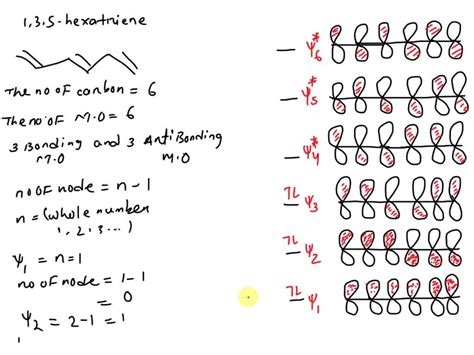 1,3,5-hexatriene
The no of carbon = 6
The no of M.O = 6
3 Bonding and 3 AntiBonding
M.O M.O
no of node = n - 1
n = (whole number
1, 2, 3 ...)
Ψ₁ = n = 1
no of node = 1 - 1
= 0
Ψ₂ = 2 - 1 = 1
Ψ₆*
Ψ₅*
Ψ₄*
1L Ψ₃
1L Ψ₂
1L Ψ₁